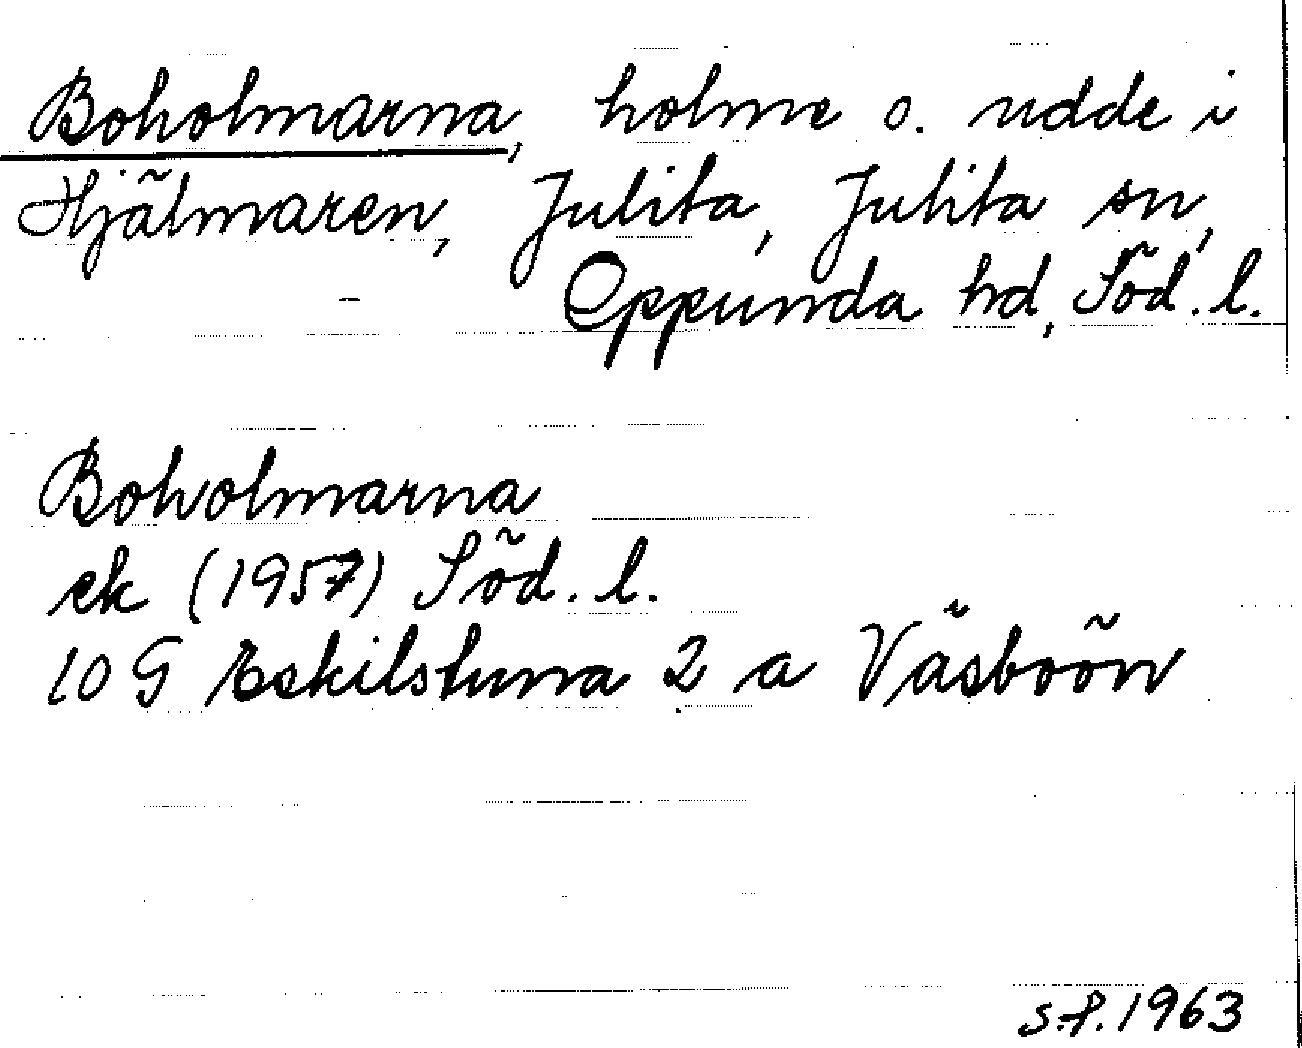 Boholmarna, holme o. udde i
Hjälmaren, Julita, Julita sn,
Oppunda hd, Söd. l.
Boholmarna
ek (1957) Söd. l.
10 G Eskilstuna 2 a Väsboön
s.f. 1963